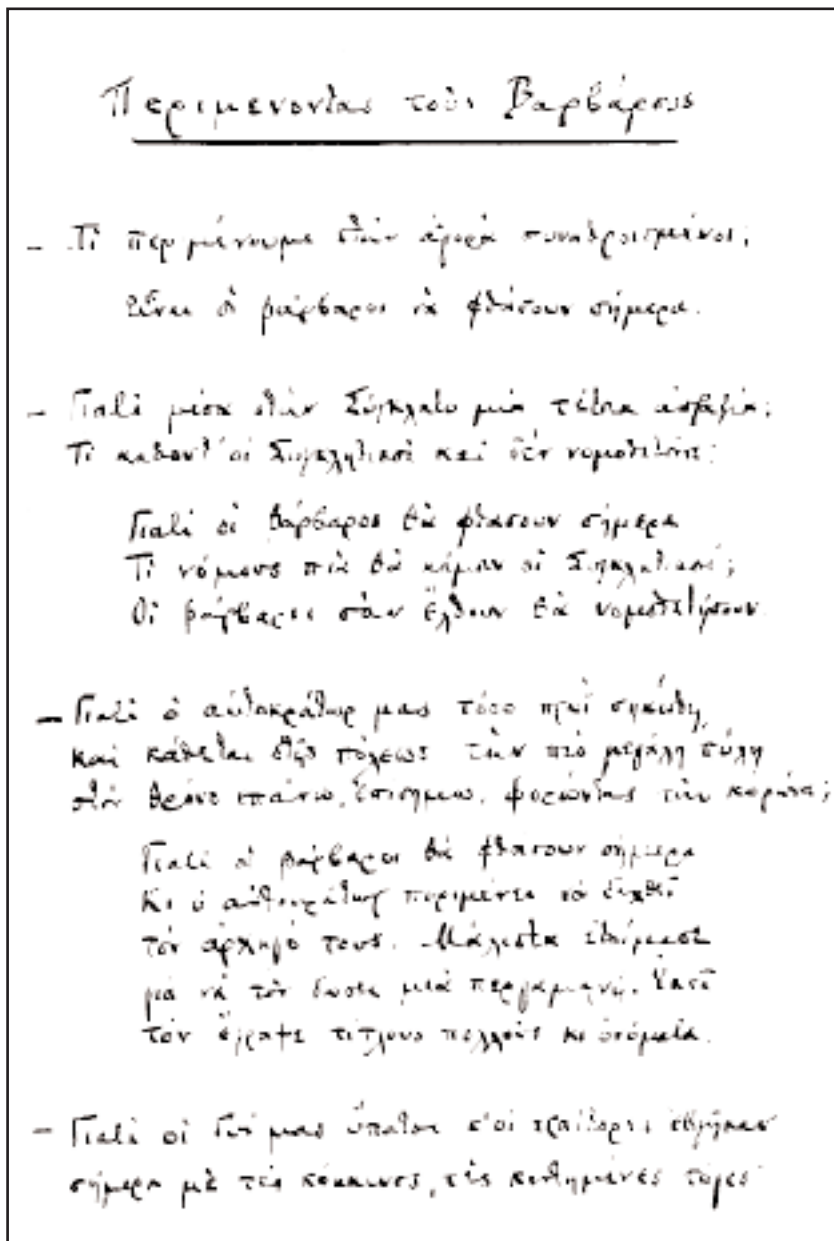 Περιμένοντας τους Βαρβάρους
– Τί περιμένουμε στην αγορά συναθροισμένοι;
Είναι οἱ βάρβαροι νὰ φθάσουν σήμερα.
– Γιατί μέσα στην Σύγκλητο μιὰ τέτοια ἀπραξία;
Τί κάθοντ' οἱ Συγκλητικοὶ καὶ δὲν νομοθετοῦνε;
Γιατί οἱ βάρβαροι θὰ φθάσουν σήμερα
Τί νόμους πιὰ θὰ κάμουν οἱ Συγκλητικοί;
Οἱ βάρβαροι σὰν ἔλθουν θὰ νομοθετήσουν
– Γιατί ὁ αὐτοκράτωρ μας τόσο πρωΐ σηκώθη,
καὶ κάθεται στῆς πόλεως τὴν πιὸ μεγάλη πύλη
στὸν θρόνο ἐπάνω, ἐπίσημος, φορώντας τὴν κορώνα;
Γιατί οἱ βάρβαροι θὰ φθάσουν σήμερα
Κι ὁ αὐτοκράτωρ περιμένει νὰ δεχθεῖ
τὸν ἀρχηγό τους. Μάλιστα ἑτοίμασε
γιὰ νὰ τὸν δώσει μιὰ περγαμηνή. Ἐκεῖ
τὸν ἔγραψε τίτλους πολλοὺς κι ὀνόματα.
– Γιατί οἱ δυό μας ὕπατοι κ' οἱ πραίτορες ἐβγῆκαν
σήμερα μὲ τὲς κόκκινες, τὲς κεντημένες τόγες